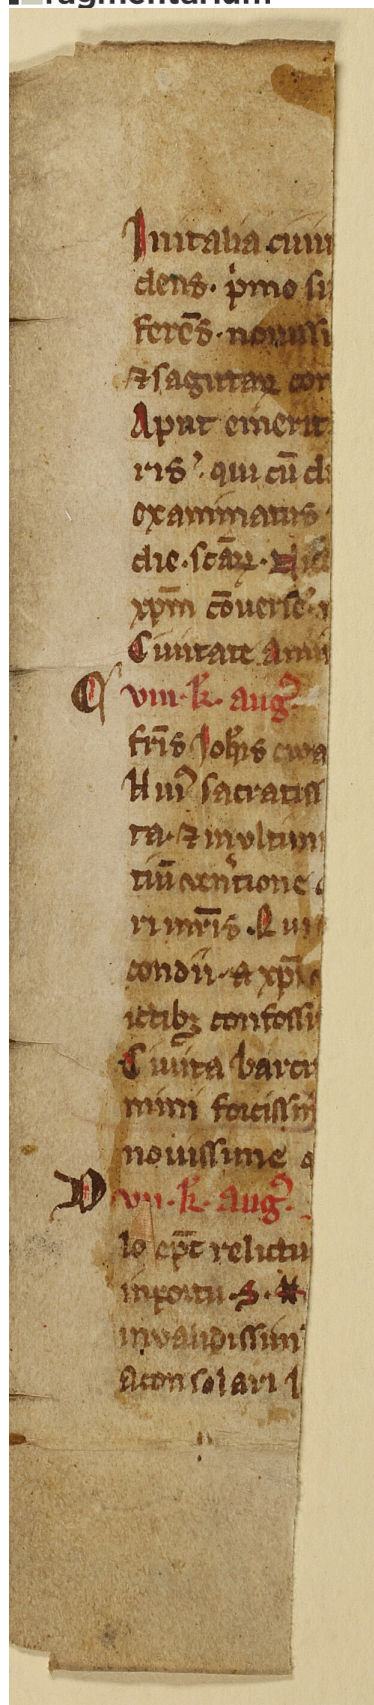 ragmentarium
In italia ciui
dens. pͥmo si
ferēs. nouissi
⁊ sagittaꝝ cor
Aput emerit
ris qui cū di
examinatus
die. scāꝝ.
xp̄m cōuerse.
Ciuitate Ami
C viii. k̄. aug
fr̄is Joh̄is ewa
Huiꝰ sacratiss
ta. ⁊ in vltim
tiū
ri mr̄is. Qui
condii. a xp̄i
ictibꝫ confossi
Ciuita barci
mini fortissim
nouissime q
D vii. k̄. Aug
lo ep̄c relictu
in portu. s.
in validissim
a consolari l